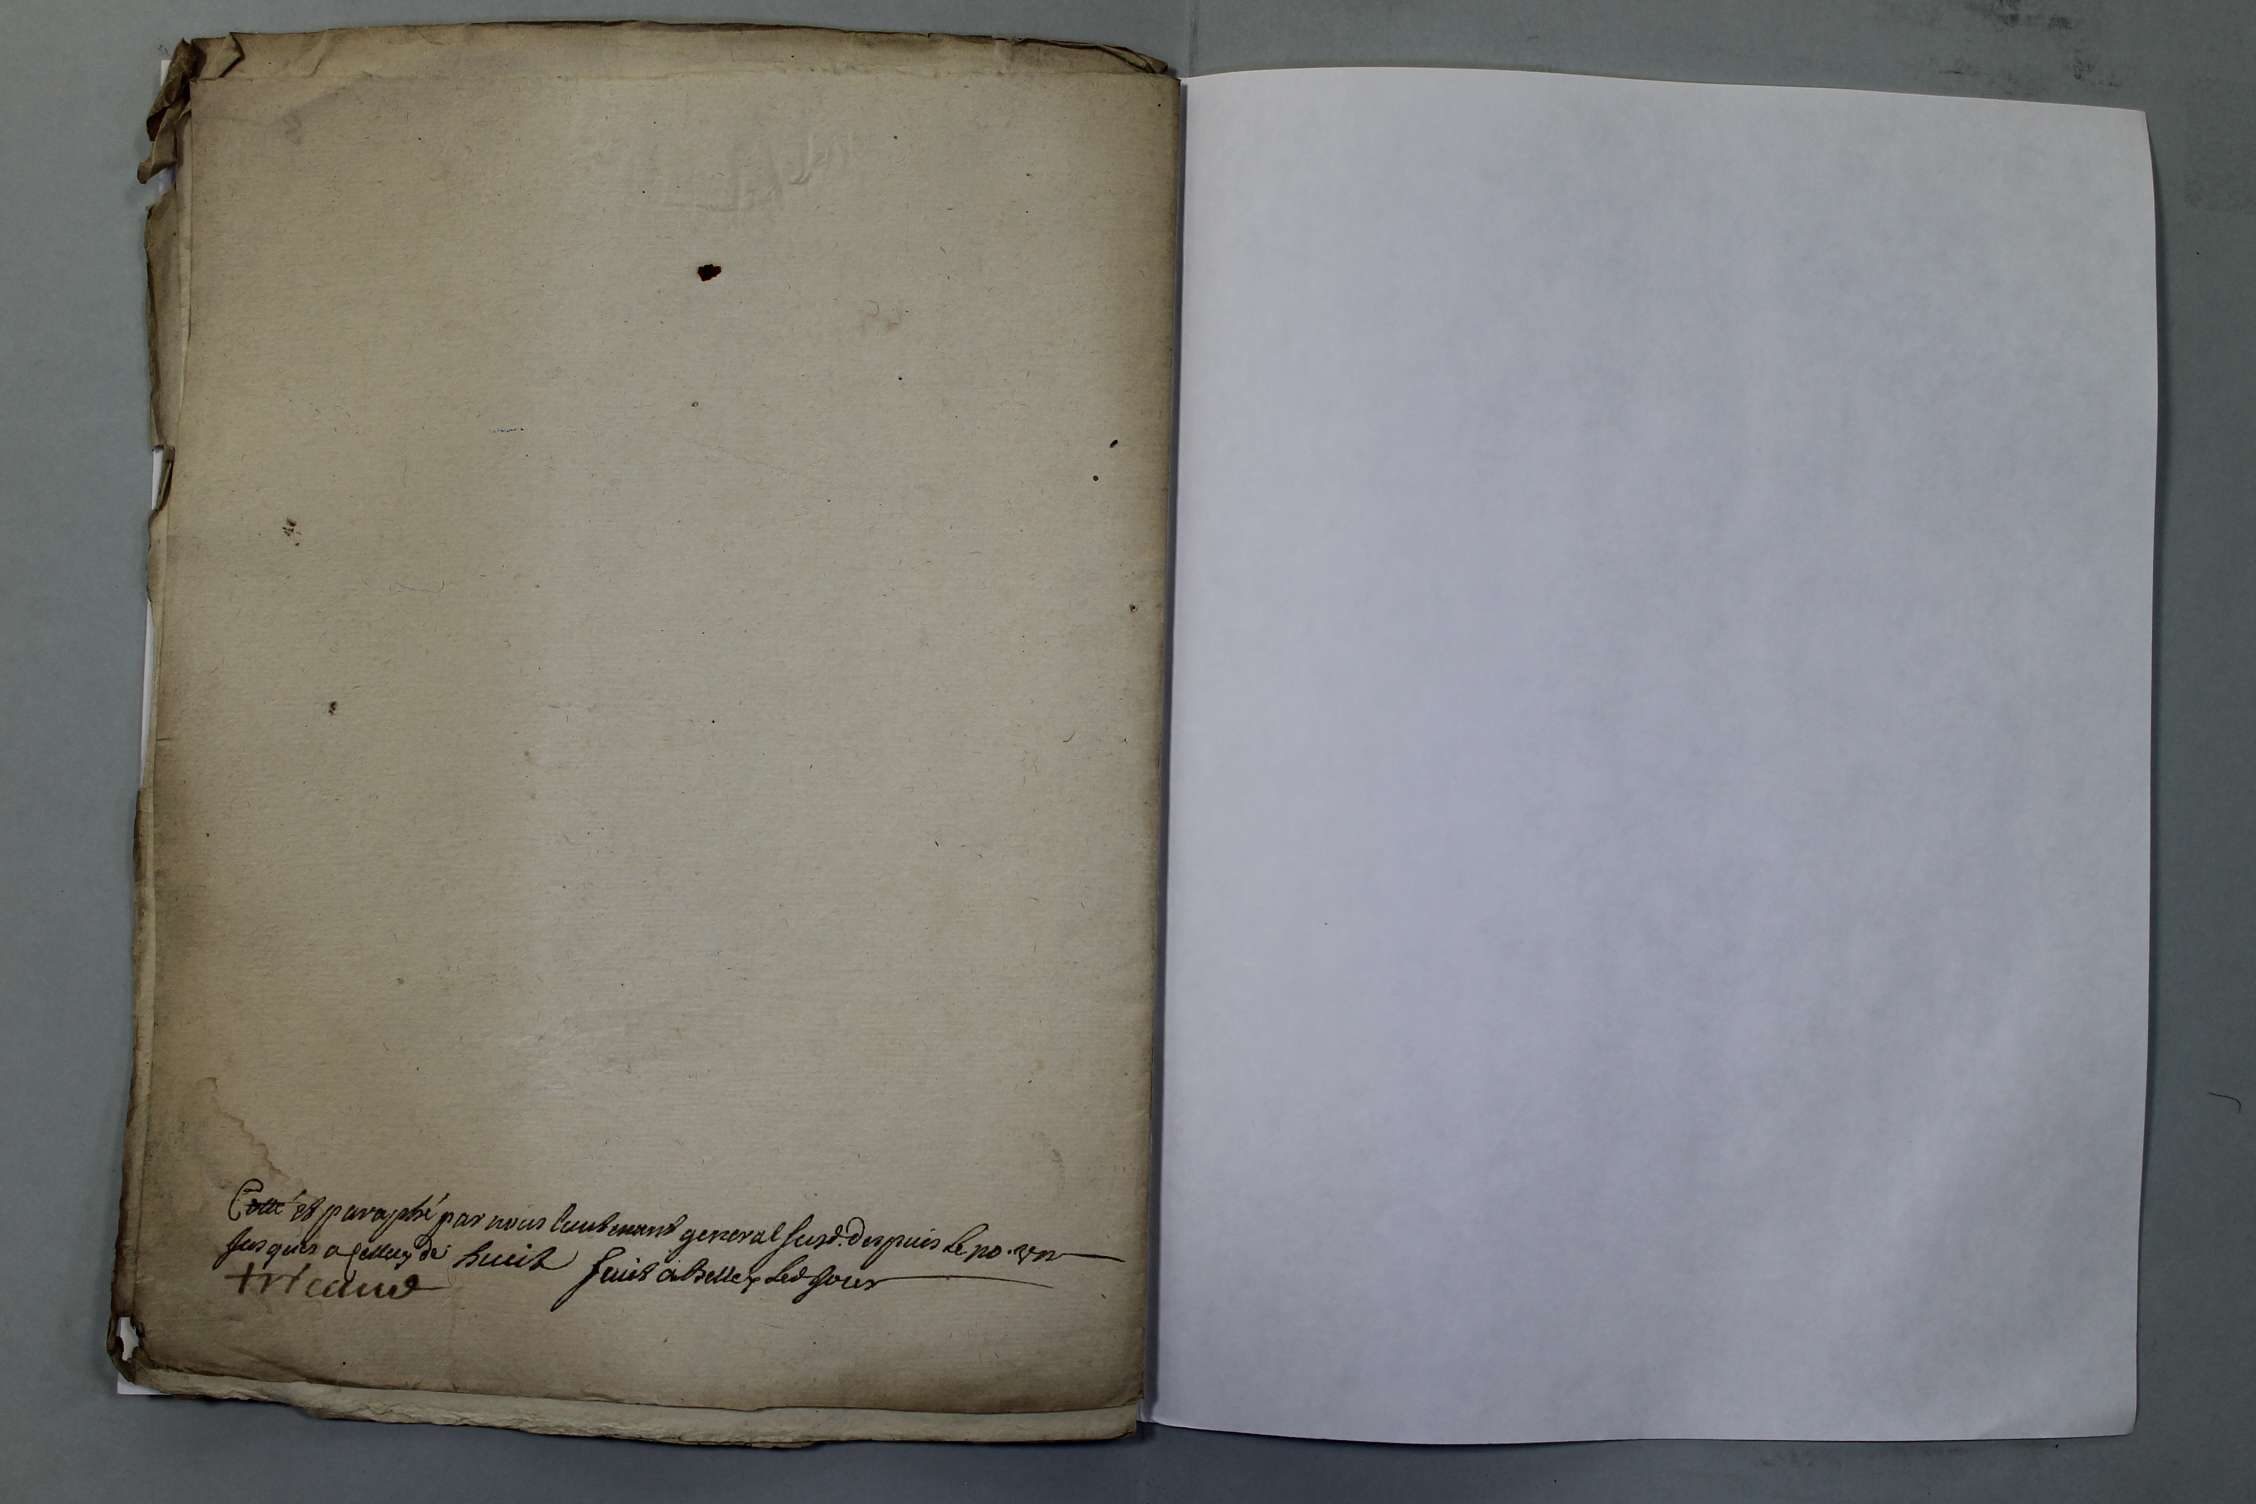 Cotté et paraphé par nous lieutenant general susd. despuis le no. un
jusques a celluy de huict faict a belley led jour
tricaud